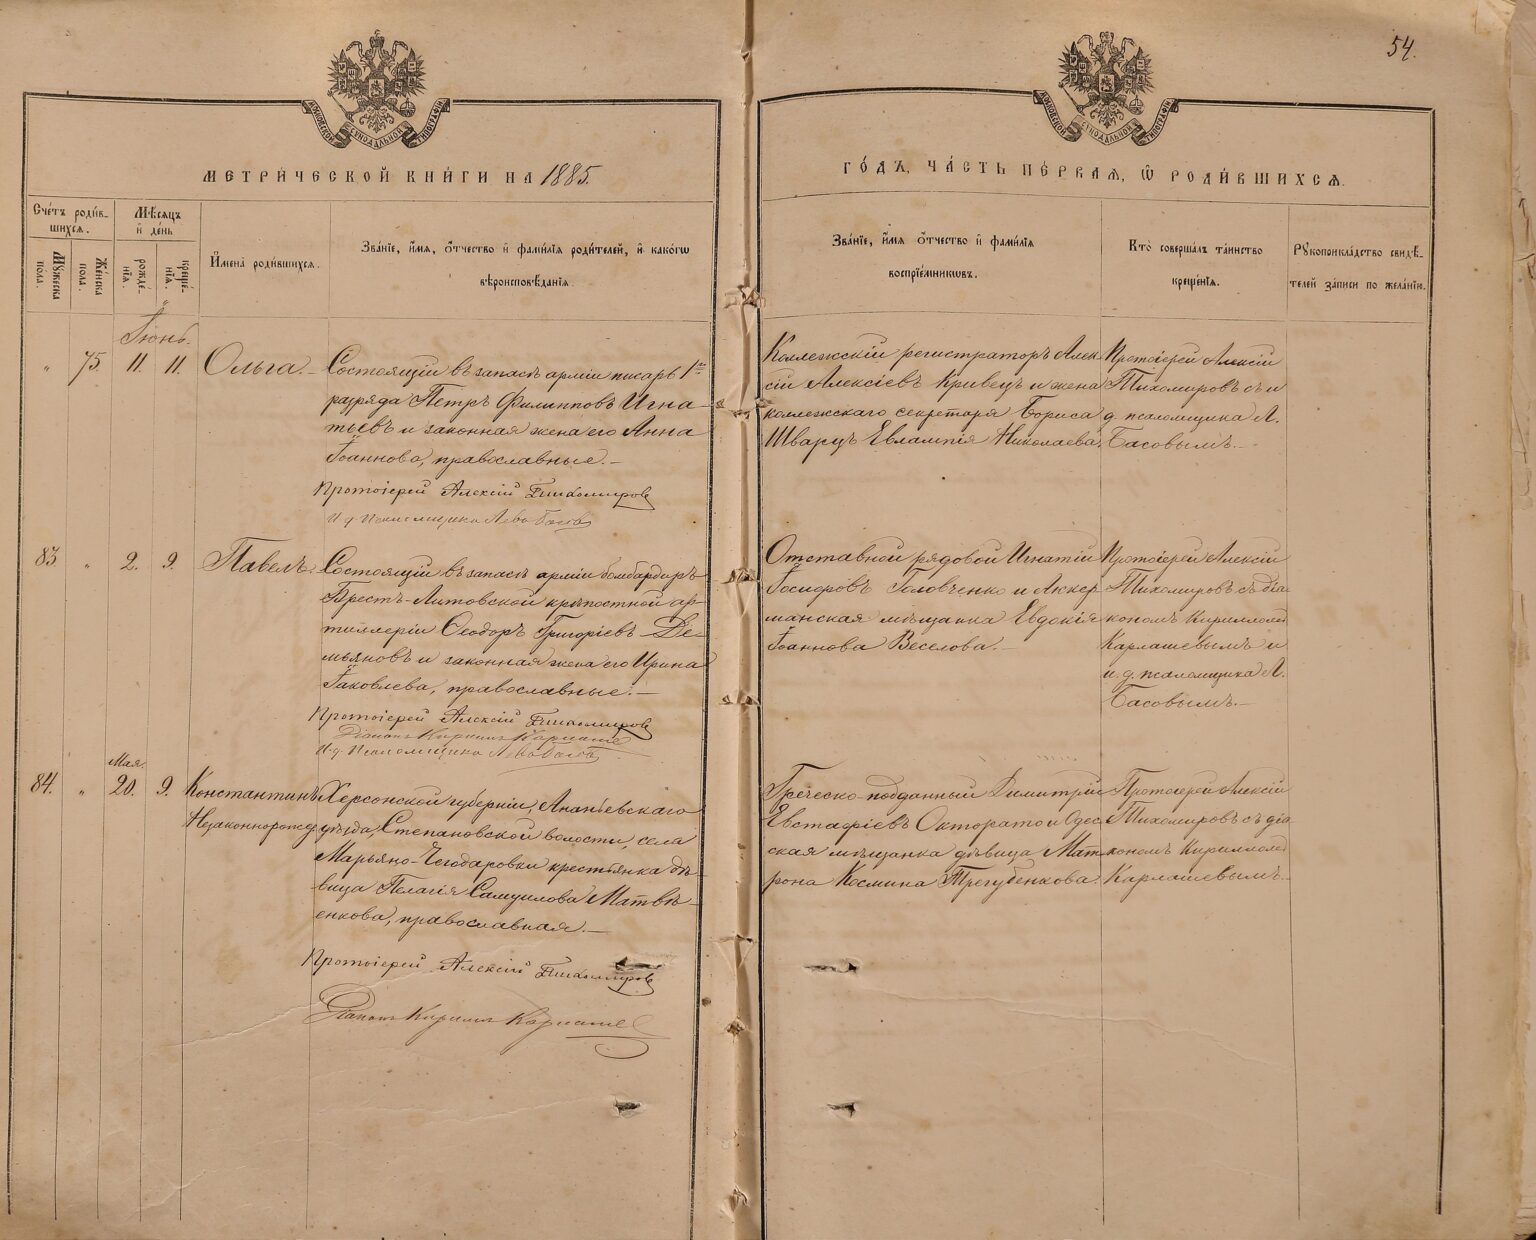 54.
МОСКОВСКОЙ СѴНОДАЛЬНОЙ ТИПОГРАФІИ
МОСКОВСКОЙ СѴНОДАЛЬНОЙ ТИПОГРАФІИ
МЕТРИ́ЧЕСКОЙ КНИ́ГИ НА 1885.
ГО́ДЪ, ЧА́СТЬ ПЕ́РВАѦ, Ѽ РОДИ́ВШИХСѦ.
Сче́тъ роди́в-
шихся.
Мꙋжеска по́ла.
Же́нска пола.
Мѣ́сяцъ
и҆ де́нь
рожде́-
нія.
креще́-
нія.
И҆мена̀ роди́вшихся.
Зва́ніе, и҆́мя, о҆́тчество и҆ фами́лія роди́телей, и҆ како́гѡ
вѣроисповѣ́данія.
Зва́ніе, и҆́мя о҆́тчество и҆ фами́лія
воспріе́мникѡвъ.
Кто̀ соверша́лъ та́инство
креще́нія.
Рꙋкоприкла́дство свидѣ́-
телей за́писи по жела́нію.
Іюнь.
„ 75. 11. 11. Ольга. — Состоящій въ запасѣ арміи писарь 1го
разряда Петръ Филипповъ Игна-
тьевъ и законная жена его Анна
Іоаннова, православные. —
Протоіерей Алексій Тихомировъ
И. д. Псаломщика Левъ Басовъ
Коллежскій регистраторъ Алек-
сій Алексіевъ Кривецъ и жена
коллежскаго секретаря Бориса
Шварцъ Евлампія Николаева.
Протоіерей Алексій
Тихомировъ съ и
д. псаломщика Л.
Басовымъ. —
83 „ 2. 9. Павелъ. Состоящій въ запасѣ арміи бомбардиръ
Брестъ-Литовской крѣпостной ар-
тиллеріи Ѳеодоръ Григоріевъ Де-
мьяновъ и законная жена его Ирина
Іаковлева, православные. —
Протоіерей Алексій Тихомировъ
Діаконъ Кириллъ Карлаше
И. д. Псаломщика Левъ Басовъ
Отставной рядовой Игнатій
Іосифовъ Головченко и Аккер-
манская мѣщанка Евдокія
Іоаннова Веселова. —
Протоіерей Алексій
Тихомировъ съ діа-
кономъ Кирилломъ
Карлашевымъ и
и. д. псаломщика Л.
Басовымъ. —
Мая.
84. „ 20. 9. Константинъ Херсонской губерніи, Ананьевскаго
Незаконнорожд. уѣзда, Степановской волости, села
Марьяно-Чегодаровки крестьянка дѣ-
вица Пелагія Самуилова Матвѣ-
енкова, православная. —
Протоіерей Алексій Тихомировъ
Діаконъ Кириллъ Карлаше
Греческо-подданный Димитрій
Евстафіевъ Окторато и Одес-
ская мѣщанка дѣвица Мат-
рона Космина Трегубенкова.
Протоіерей Алексій
Тихомировъ съ діа-
кономъ Кирилломъ
Карлашевымъ. —